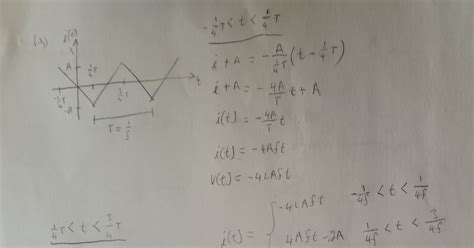 (λ) i(t)
-1/4 T < t < 1/4 T
A
1/4 T
3/4 T
t
-A
T = 1/f
i + A = -A/(1/4 T) (t - 1/4 T)
i + A = -4A/T t + A
i(t) = -4A/T t
i(t) = -4Aft
v(t) = -4LAft
1/4 T < t < 3/4 T
i(t) = { -4Aft -1/4f < t < 1/4f
4Aft - 2A 1/4f < t < 3/4f